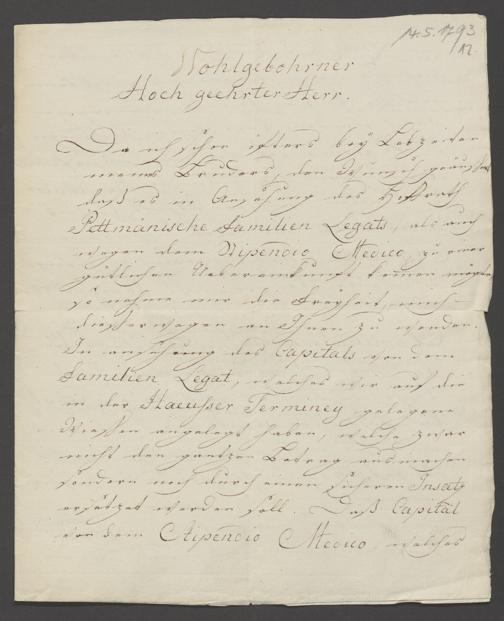 14.5.1793
12
Wohlgebohrner
Hoch geehrter Herr.
Da ich schon öfters bey Lebzeiten
meines Bruders, den Wunsch geäussert
daß es in Ansehung des Hofrath
Pettmänische Familien Legats, als auch
wegen dem Stipendio Medico, zu einer
gütlichen Uebereinkunft kommen möge
so nehme mir die Freyheit, mich
diesserwegen an Ihnen zu wenden.
In ansehung des Capitals von dem
Familien Legat, welches wir auf die
in der Haeusser Terminey gelegene
Wiessen angelegt haben, welche zwar
nicht den gantzen Betrag ausmachen
sondern noch durch einen sicheren Insatz
ersetzet werden soll. Daß Capital
von dem Stipendio Medico, welches